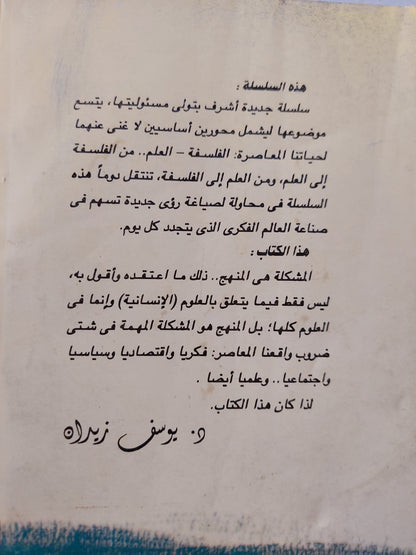 هذه السلسلة :
سلسلة جديدة أشرف بتولى مسئوليتها، يتسع
موضوعها ليشمل محورين أساسيين لا غنى عنهما
لحياتنا المعاصرة: الفلسفة - العلم.. من الفلسفة
إلى العلم، ومن العلم إلى الفلسفة، تنتقل دوماً هذه
السلسلة فى محاولة لصياغة رؤى جديدة تسهم فى
صناعة العالم الفكرى الذى يتجدد كل يوم.
هذا الكتاب :
المشكلة هى المنهج.. ذلك ما اعتقده وأقول به،
ليس فقط فيما يتعلق بالعلوم (الإنسانية) وإنما فى
العلوم كلها؛ بل المنهج هو المشكلة المهمة فى شتى
ضروب واقعنا المعاصر: فكريا واقتصاديا وسياسيا
واجتماعيا.. وعلميا أيضا .
لذا كان هذا الكتاب.
د. يوسف زيدان